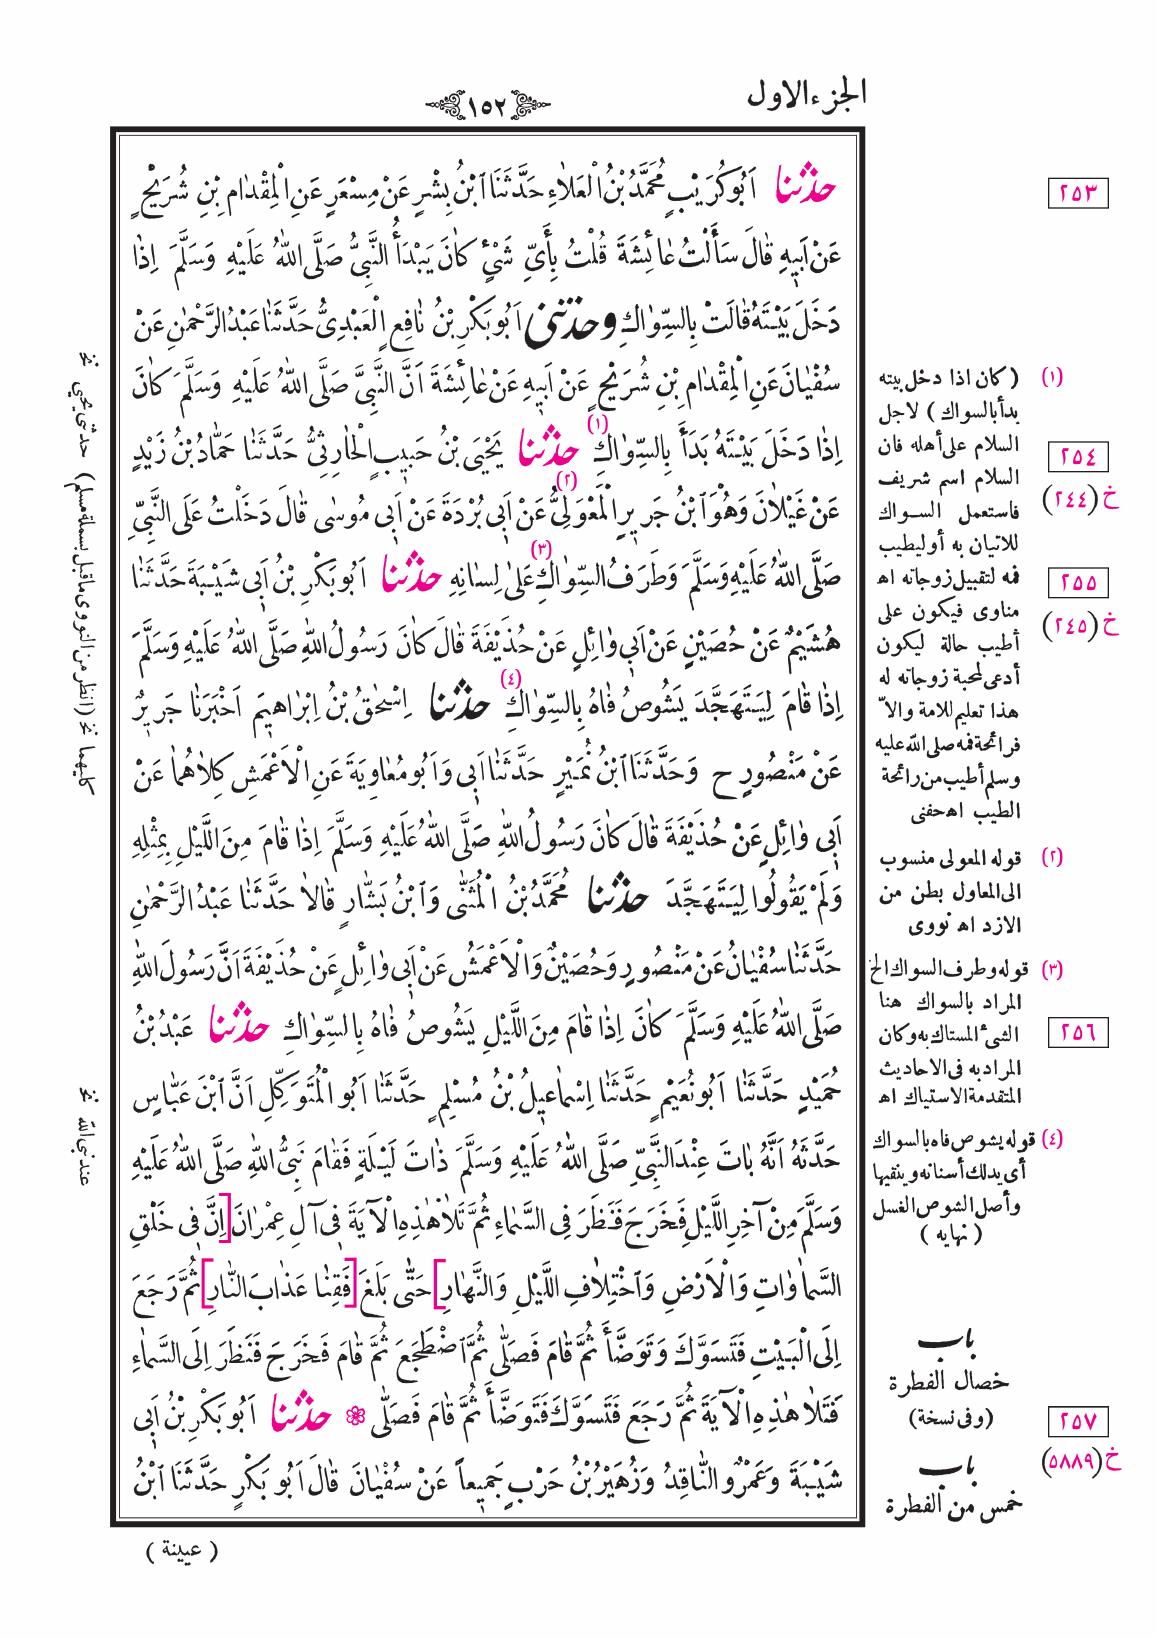 الجزء الاول
١٥٢
حدثنا اَبُو كُرَيْبٍ مُحَمَّدُ بْنُ الْعَلَاءِ حَدَّثَنَا ابْنُ بِشْرٍ عَنْ مِسْعَرٍ عَنِ الْمِقْدَامِ بْنِ شُرَيْحٍ
عَنْ اَبِيهِ قَالَ سَأَلْتُ عَائِشَةَ قُلْتُ بِأَيِّ شَيْءٍ كَانَ يَبْدَأُ النَّبِيُّ صَلَّى اللهُ عَلَيْهِ وَسَلَّمَ اِذَا
دَخَلَ بَيْتَهُ قَالَتْ بِالسِّوَاكِ وحدثني اَبُو بَكْرِ بْنُ نَافِعٍ الْعَبْدِيُّ حَدَّثَنَا عَبْدُ الرَّحْمٰنِ عَنْ
سُفْيَانَ عَنِ الْمِقْدَامِ بْنِ شُرَيْحٍ عَنْ اَبِيهِ عَنْ عَائِشَةَ اَنَّ النَّبِيَّ صَلَّى اللهُ عَلَيْهِ وَسَلَّمَ كَانَ
اِذَا دَخَلَ بَيْتَهُ بَدَأَ بِالسِّوَاكِ (١) حدثنا يَحْيَى بْنُ حَبِيبٍ الْحَارِثِيُّ حَدَّثَنَا حَمَّادُ بْنُ زَيْدٍ
عَنْ غَيْلَانَ وَهُوَ ابْنُ جَرِيرٍ الْمَعْوَلِيُّ (٢) عَنْ اَبِي بُرْدَةَ عَنْ اَبِي مُوسَى قَالَ دَخَلْتُ عَلَى النَّبِيِّ
صَلَّى اللهُ عَلَيْهِ وَسَلَّمَ وَطَرَفُ السِّوَاكِ (٣) عَلَى لِسَانِهِ حدثنا اَبُو بَكْرِ بْنُ اَبِي شَيْبَةَ حَدَّثَنَا
هُشَيْمٌ عَنْ حُصَيْنٍ عَنْ اَبِي وَائِلٍ عَنْ حُذَيْفَةَ قَالَ كَانَ رَسُولُ اللهِ صَلَّى اللهُ عَلَيْهِ وَسَلَّمَ
اِذَا قَامَ لِيَتَهَجَّدَ يَشُوصُ فَاهُ بِالسِّوَاكِ (٤) حدثنا اِسْحٰقُ بْنُ اِبْرَاهِيمَ اَخْبَرَنَا جَرِيرٌ
عَنْ مَنْصُورٍ ح وَحَدَّثَنَا ابْنُ نُمَيْرٍ حَدَّثَنَا اَبِي وَاَبُو مُعَاوِيَةَ عَنِ الْاَعْمَشِ كِلَاهُمَا عَنْ
اَبِي وَائِلٍ عَنْ حُذَيْفَةَ قَالَ كَانَ رَسُولُ اللهِ صَلَّى اللهُ عَلَيْهِ وَسَلَّمَ اِذَا قَامَ مِنَ اللَّيْلِ بِمِثْلِهِ
وَلَمْ يَقُولُوا لِيَتَهَجَّدَ حدثنا مُحَمَّدُ بْنُ الْمُثَنَّى وَابْنُ بَشَّارٍ قَالَا حَدَّثَنَا عَبْدُ الرَّحْمٰنِ
حَدَّثَنَا سُفْيَانُ عَنْ مَنْصُورٍ وَحُصَيْنٌ وَالْاَعْمَشُ عَنْ اَبِي وَائِلٍ عَنْ حُذَيْفَةَ اَنَّ رَسُولَ اللهِ
صَلَّى اللهُ عَلَيْهِ وَسَلَّمَ كَانَ اِذَا قَامَ مِنَ اللَّيْلِ يَشُوصُ فَاهُ بِالسِّوَاكِ حدثنا عَبْدُ بْنُ
حُمَيْدٍ حَدَّثَنَا اَبُو نُعَيْمٍ حَدَّثَنَا اِسْمَاعِيلُ بْنُ مُسْلِمٍ حَدَّثَنَا اَبُو الْمُتَوَكِّلِ اَنَّ ابْنَ عَبَّاسٍ
حَدَّثَهُ اَنَّهُ بَاتَ عِنْدَ النَّبِيِّ صَلَّى اللهُ عَلَيْهِ وَسَلَّمَ ذَاتَ لَيْلَةٍ فَقَامَ نَبِيُّ اللهِ صَلَّى اللهُ عَلَيْهِ
وَسَلَّمَ مِنْ آخِرِ اللَّيْلِ فَخَرَجَ فَنَظَرَ فِي السَّمَاءِ ثُمَّ تَلَا هٰذِهِ الْآيَةَ فِي آلِ عِمْرَانَ [اِنَّ فِي خَلْقِ
السَّمَاوَاتِ وَالْاَرْضِ وَاخْتِلَافِ اللَّيْلِ وَالنَّهَارِ] حَتَّى بَلَغَ [فَقِنَا عَذَابَ النَّارِ] ثُمَّ رَجَعَ
اِلَى الْبَيْتِ فَتَسَوَّكَ وَتَوَضَّأَ ثُمَّ قَامَ فَصَلَّى ثُمَّ اضْطَجَعَ ثُمَّ قَامَ فَخَرَجَ فَنَظَرَ اِلَى السَّمَاءِ
فَتَلَا هٰذِهِ الْآيَةَ ثُمَّ رَجَعَ فَتَسَوَّكَ فَتَوَضَّأَ ثُمَّ قَامَ فَصَلَّى ❁ حدثنا اَبُو بَكْرِ بْنُ اَبِي
شَيْبَةَ وَعَمْرٌو النَّاقِدُ وَزُهَيْرُ بْنُ حَرْبٍ جَمِيعاً عَنْ سُفْيَانَ قَالَ اَبُو بَكْرٍ حَدَّثَنَا ابْنُ
( عيينة )
٢٥٣
(١) ( كان اذا دخل بيته
بدأ بالسواك ) لاجل
السلام على أهله فان
السلام اسم شريف
فاستعمل السواك
للاتيان به أوليطيب
فمه لتقبيل زوجاته اه
مناوى فيكون على
أطيب حالة ليكون
أدعى لمحبة زوجاته له
هذا تعليم للامة والاّ
فرائحة فمه صلى الله عليه
وسلم أطيب من رائحة
الطيب اه حفنى
٢٥٤
خ (٢٤٤)
٢٥٥
خ (٢٤٥)
(٢) قوله المعولى منسوب
الى المعاول بطن من
الازد اه نووى
(٣) قوله وطرف السواك الخ
المراد بالسواك هنا
الشىء المستاك به وكان
المراد به فى الاحاديث
المتقدمة الاستياك اه
٢٥٦
(٤) قوله يشوص فاه بالسواك
أى يدلك أسنانه وينقيها
وأصل الشوص الغسل
( نهايه )
باب
خصال الفطرة
(وفى نسخة)
باب
خمس من الفطرة
٢٥٧
خ (٥٨٨٩)
نخ حدثنى يحيى
(انظر من النووى ماقبل بسملة مسلم)
كليهما نخ
عند نبى الله نخ